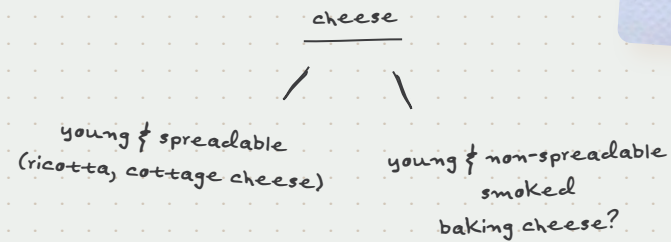 cheese
young & spreadable
(ricotta, cottage cheese)
young & non-spreadable
smoked
baking cheese?